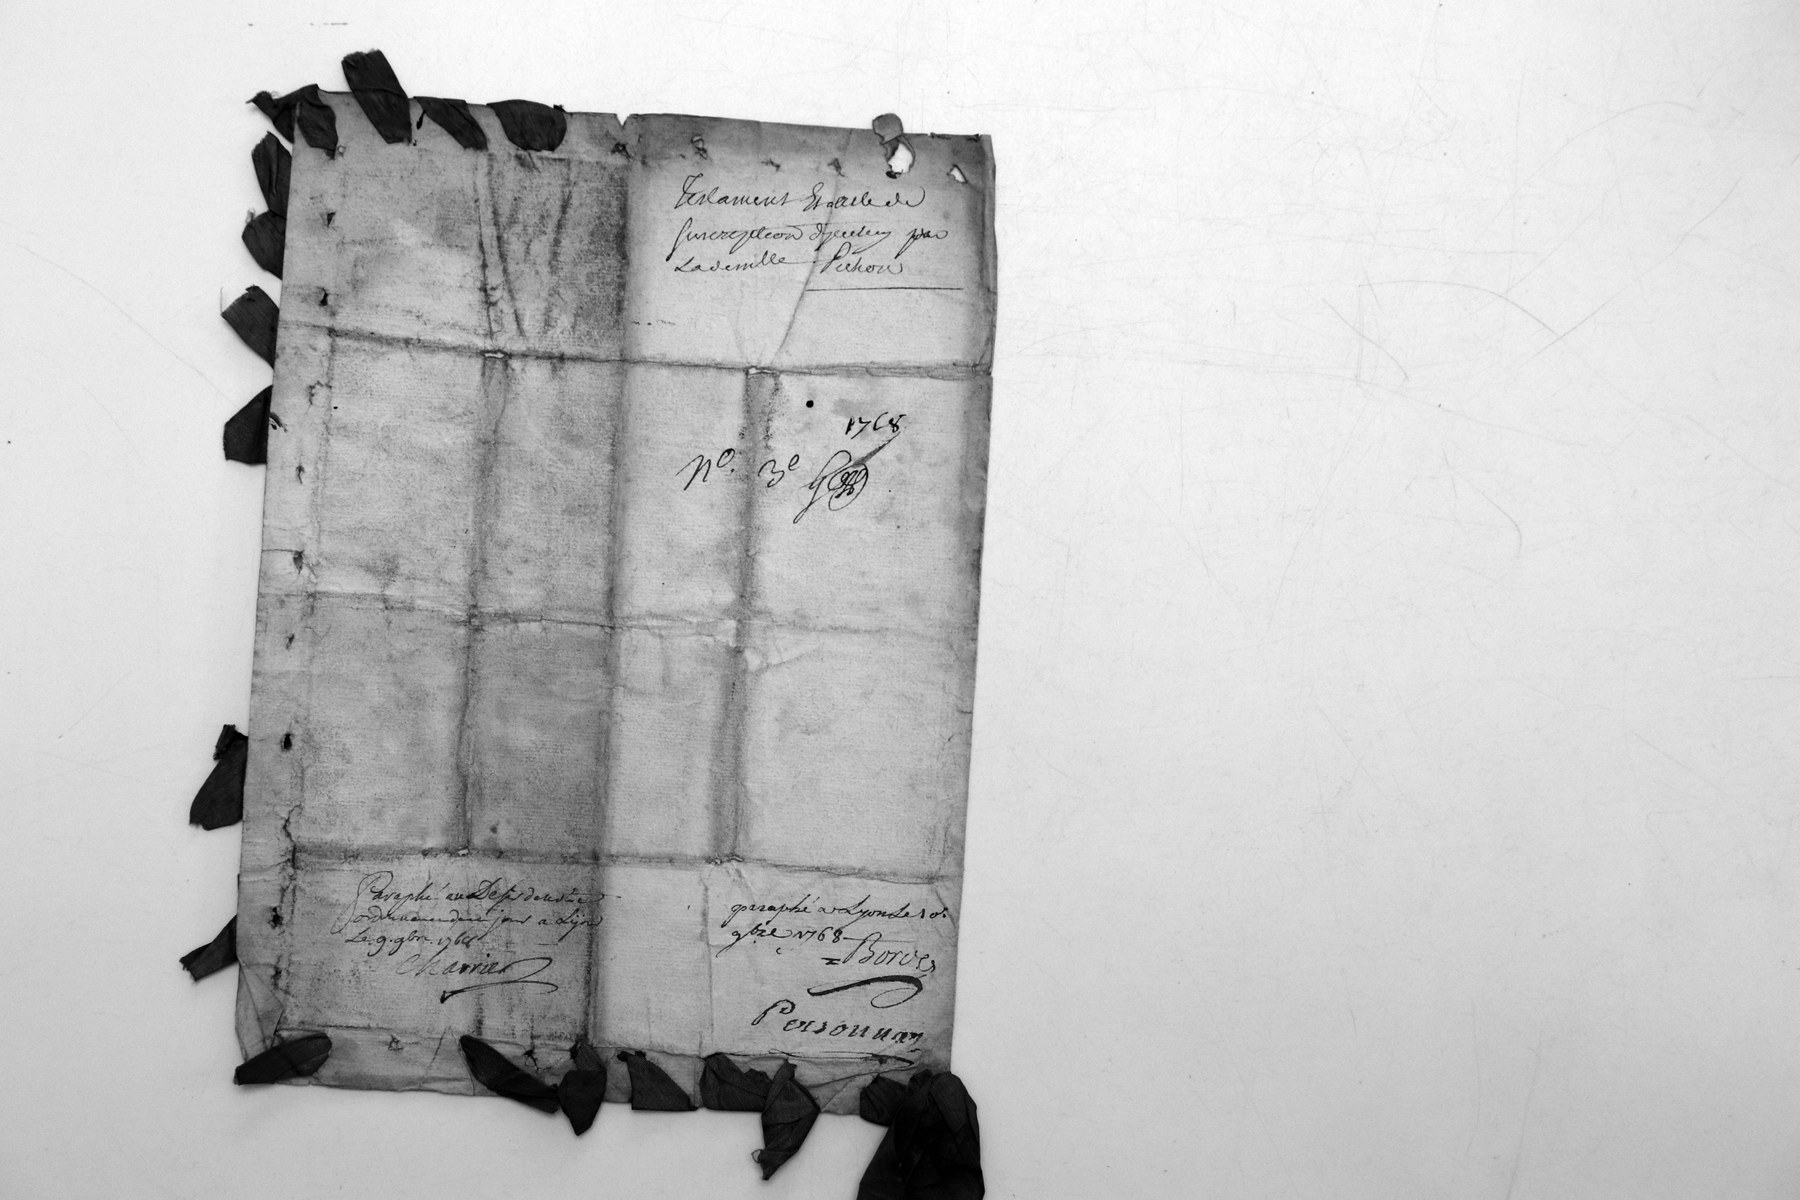 Testament Et acte de
Suscription d'icelluy par
Lademlle Pichon
1768
No. 3e
Paraphé au Desir de notre
ordonnance de ce jour a Lyon
Le 9. 9bre. 1768
Charrier
paraphé a Lyon Le 10.
9bre 1768
Borde
Personnaz